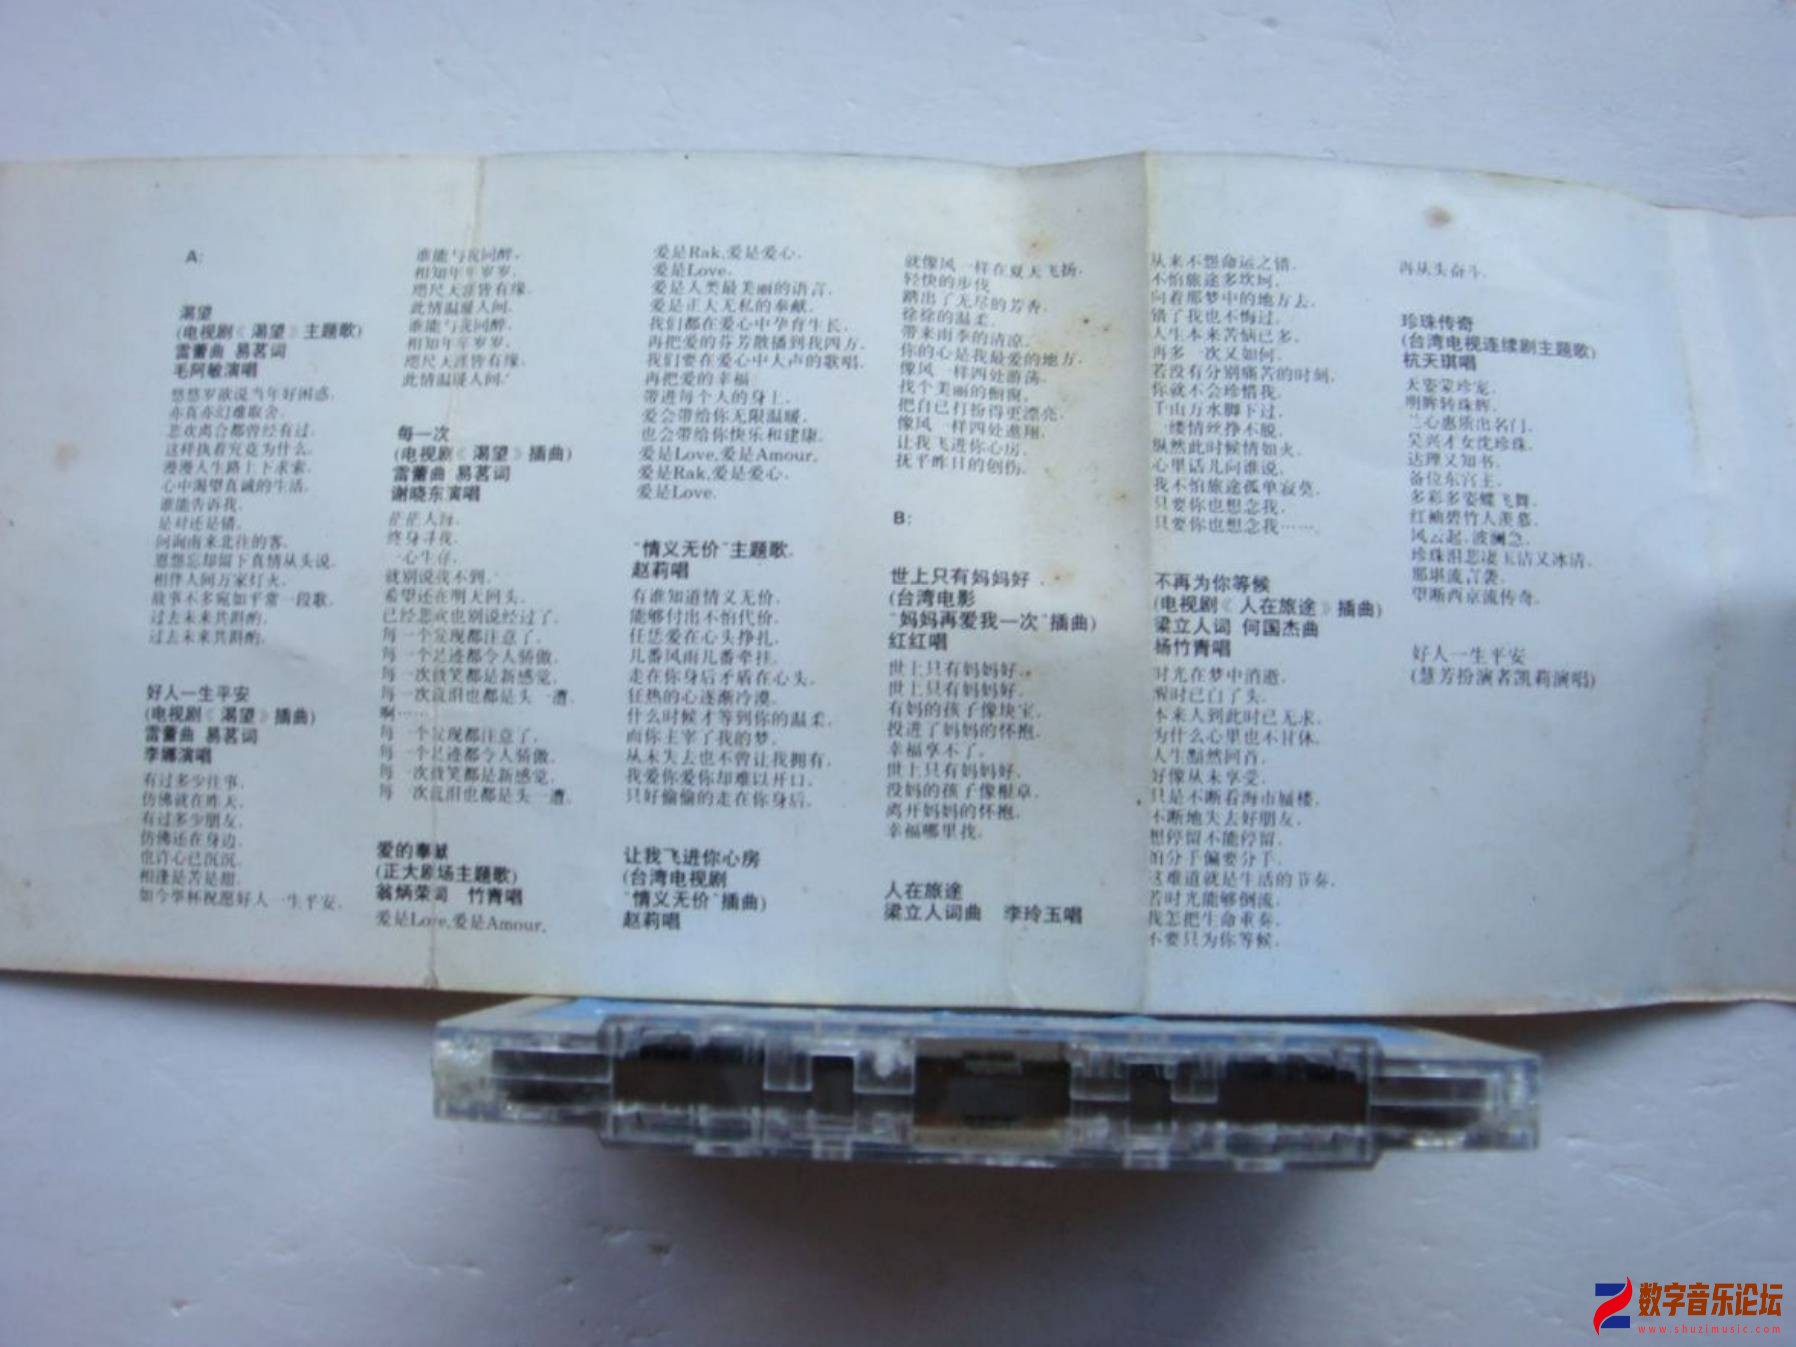 A:
渴望
(电视剧《渴望》主题歌)
雷蕾曲 易茗词
毛阿敏演唱
悠悠岁欲说当年好困惑,
亦真亦幻难取舍,
悲欢离合都曾经有过,
这样执着究竟为什么,
漫漫人生路上下求索,
心中渴望真诚的生活,
谁能告诉我,
是对还是错,
问询南来北往的客,
恩怨忘却留下真情从头说,
相伴人间万家灯火,
故事不多宛如平常一段歌,
过去未来共斟酌,
过去未来共斟酌,
好人一生平安
(电视剧《渴望》插曲)
雷蕾曲 易茗词
李娜演唱
有过多少往事,
仿佛就在昨天,
有过多少朋友,
仿佛还在身边,
也许心已沉沉,
相逢是苦是甜,
如今举杯祝愿好人一生平安,
谁能与我同醉,
相知年年岁岁,
咫尺天涯皆有缘,
此情温暖人间,
谁能与我同醉,
相知年年岁岁,
咫尺天涯皆有缘,
此情温暖人间,
每一次
(电视剧《渴望》插曲)
雷蕾曲 易茗词
谢晓东演唱
茫茫人海,
终身寻我,
一心生存,
就别说找不到,
希望还在明天回头,
已经悲欢也别说经过了,
每一个发现都注意了,
每一个足迹都令人骄傲,
每一次微笑都是新感觉,
每一次流泪也都是头一遭,
啊……
每一个发现都注意了,
每一个足迹都令人骄傲,
每一次微笑都是新感觉,
每一次流泪也都是头一遭,
爱的奉献
(正大剧场主题歌)
翁炳荣词 竹青唱
爱是Love,爱是Amour,
爱是Rak,爱是爱心,
爱是Love,
爱是人类最美丽的语言,
爱是正大无私的奉献,
我们都在爱心中孕育生长,
再把爱的芬芳散播到我四方,
我们要在爱心中大声的歌唱,
再把爱的幸福
带进每个人的身上,
爱会带给你无限温暖,
也会带给你快乐和建康,
爱是Love,爱是Amour,
爱是Rak,爱是爱心,
爱是Love,
“情义无价”主题歌,
赵莉唱
有谁知道情义无价,
能够付出不怕代价,
任恁爱在心头挣扎,
几番风雨几番牵挂,
走在你身后矛盾在心头,
狂热的心逐渐冷漠,
什么时候才等到你的温柔,
而你主宰了我的梦,
从未失去也不曾让我拥有,
我爱你爱你却难以开口,
只好偷偷的走在你身后,
让我飞进你心房
(台湾电视剧
“情义无价”插曲)
赵莉唱
就像风一样在夏天飞扬,
轻快的步伐
踏出了无尽的芳香,
徐徐的温柔,
带来雨季的清凉,
你的心是我最爱的地方,
像风一样四处游荡,
找个美丽的橱窗,
把自己打扮得更漂亮,
像风一样四处遨翔,
让我飞进你心房,
抚平昨日的创伤,
B:
世上只有妈妈好
(台湾电影
“妈妈再爱我一次”插曲)
红红唱
世上只有妈妈好,
世上只有妈妈好,
有妈的孩子像块宝,
投进了妈妈的怀抱,
幸福享不了,
世上只有妈妈好,
没妈的孩子像根草,
离开妈妈的怀抱,
幸福哪里找,
人在旅途
梁立人词曲 李玲玉唱
从来不怨命运之错,
不怕旅途多坎坷,
向着那梦中的地方去,
错了我也不悔过,
人生本来苦恼已多,
再多一次又如何,
若没有分别痛苦的时刻,
你就不会珍惜我,
千山万水脚下过,
一缕情丝挣不脱,
纵然此时候情如火,
心里话儿问谁说,
我不怕旅途孤单寂莫,
只要你也想念我,
只要你也想念我……,
不再为你等候
(电视剧《人在旅途》插曲)
梁立人词 何国杰曲
杨竹青唱
时光在梦中消逝,
醒时已白了头,
本来人到此时已无求,
为什么心里也不甘休,
人生黯然回首,
好像从未享受,
只是不断看海市蜃楼,
不断地失去好朋友,
想停留不能停留,
怕分手偏要分手,
这难道就是生活的节奏,
若时光能够倒流,
我怎把生命重奏,
不要只为你等候,
再从头奋斗,
珍珠传奇
(台湾电视连续剧主题歌)
杭天琪唱
天姿蒙珍宠,
明眸转珠辉,
兰心惠质出名门,
吴兴才女沈珍珠,
达理又知书,
备位东宫主,
多彩多姿蝶飞舞,
红袖碧竹人羡慕,
风云起,波澜急,
珍珠泪悲凄玉洁又冰清,
那堪流言袭,
望断西京流传奇,
好人一生平安
(慧芳扮演者凯莉演唱)
数字音乐论坛
www.shuzimusic.com